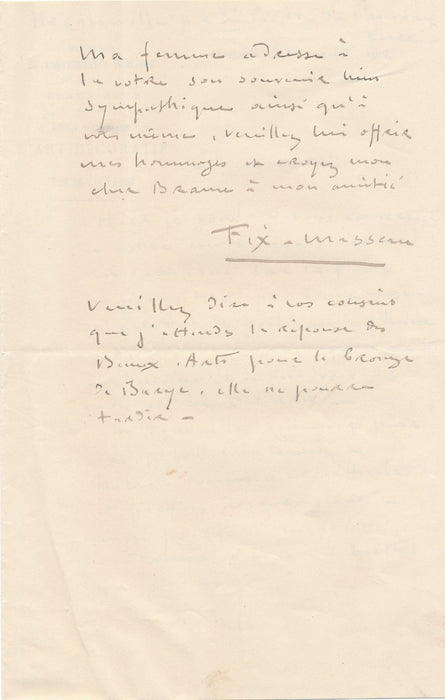 Ma femme adresse à
la votre son souvenir bien
sympathique ainsi qu'à
vous même, veuillez lui offrir
mes hommages et croyez mon
cher Brame à mon amitié
Fix-Masseau
Veuillez dire à vos cousins
que j'attends la réponse des
Beaux-Arts pour le bronze
de Barye, elle ne pourra
tarder –